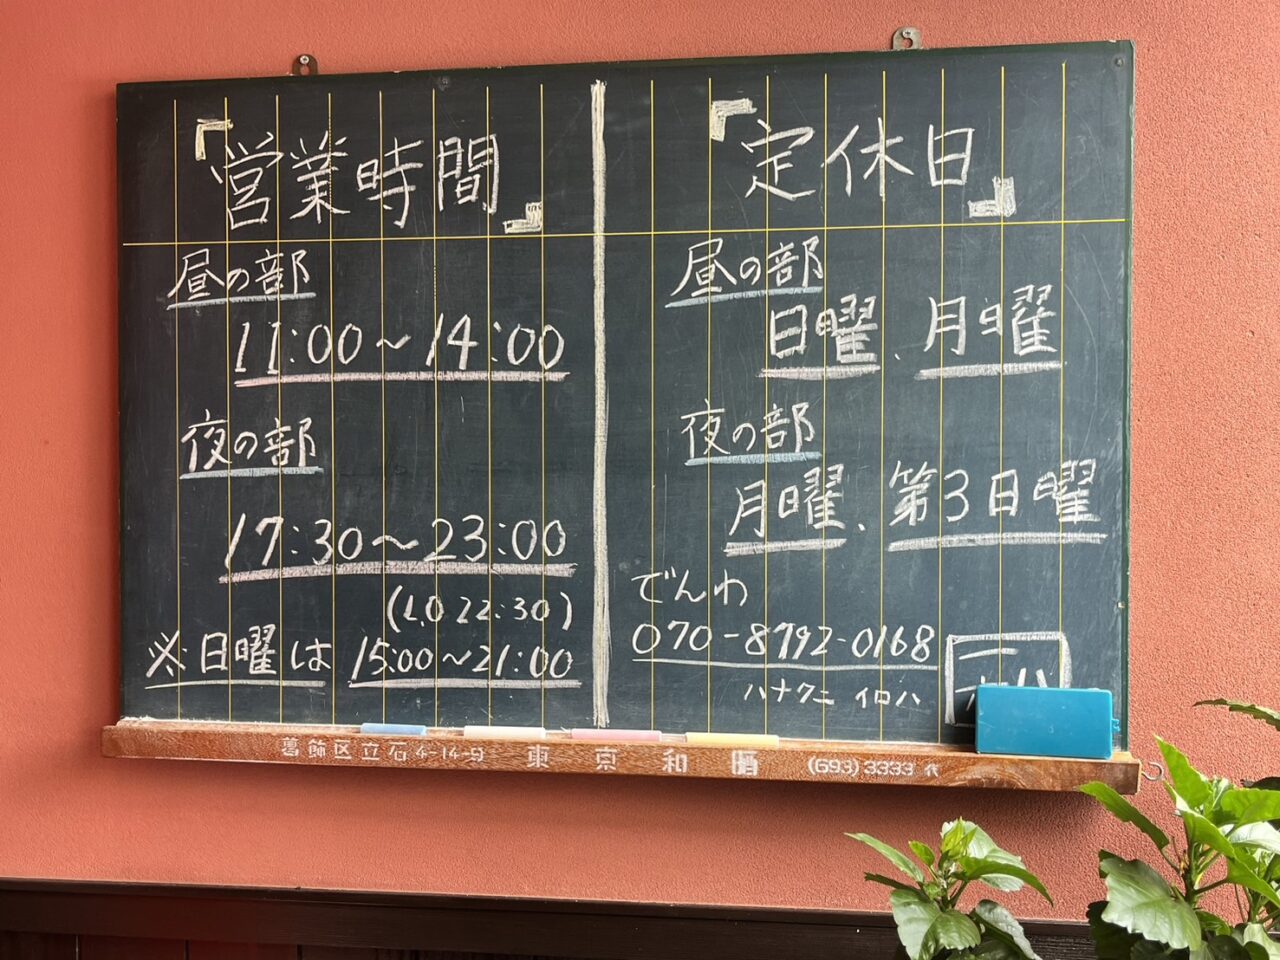 『営業時間』
昼の部
11:00～14:00
夜の部
17:30～23:00
(L.O 22:30)
※日曜は 15:00～21:00
『定休日』
昼の部
日曜、月曜
夜の部
月曜、第3日曜
でんわ
070-8792-0168
ハナクニ イロハ
葛飾区立石4-14-9 東京和晒 (693)3333代